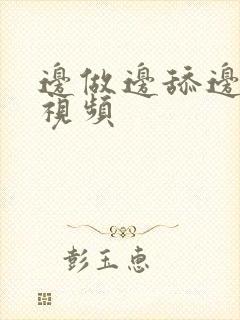 邊做邊舔邊
視頻
彭玉惠